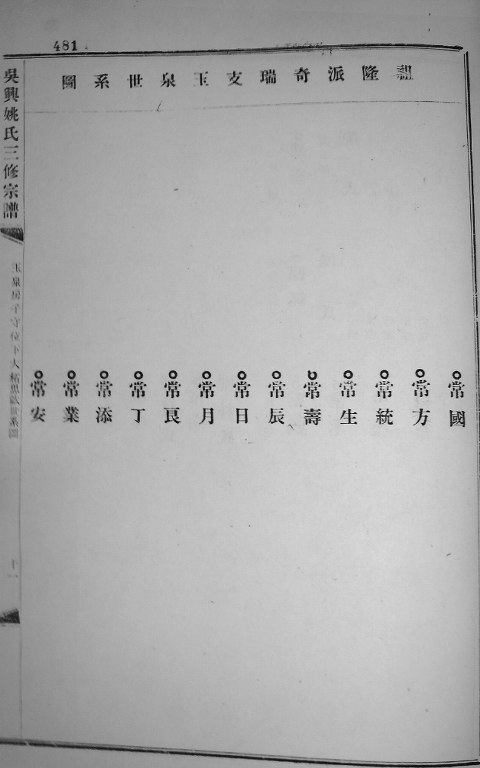 481
䚻隆派奇瑞支玉泉世系圖
常國
常方
常統
常生
常壽
常辰
常日
常月
常艮
常丁
常添
常業
常安
吳興姚氏三修宗譜
玉泉房子守位下大
世系圖
十一